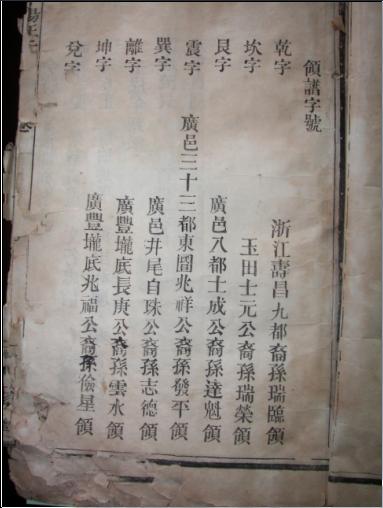 領譜字號
乾字 浙江壽昌九都裔孫瑞臨領
坎字 玉田士元公裔孫瑞榮領
艮字 廣邑八都士成公裔孫達魁領
震字 廣邑三十三都東圖兆祥公裔孫發平領
巽字 廣邑井尾白珠公裔孫志德領
離字 廣豐壠底長庚公裔孫雲水領
坤字 廣豐壠底兆福公裔孫儉星領
兌字